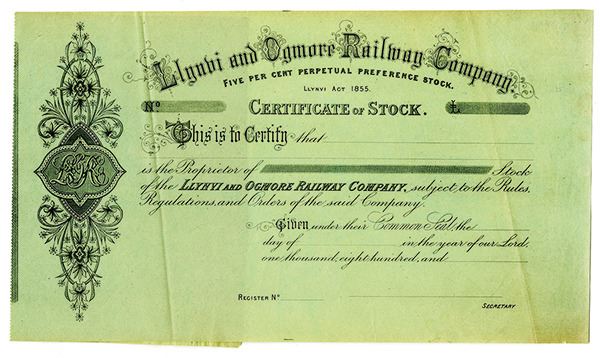 Llynvi and Ogmore Railway Company
FIVE PER CENT PERPETUAL PREFERENCE STOCK.
LLYNVI ACT 1855.
No £
CERTIFICATE OF STOCK.
This is to Certify that
is the Proprietor of Stock
of the LLYNVI AND OGMORE RAILWAY COMPANY, subject to the Rules,
Regulations, and Orders of the said Company.
Given under their Common Seal, the
day of in the year of our Lord,
one thousand, eight hundred, and
REGISTER No
SECRETARY.